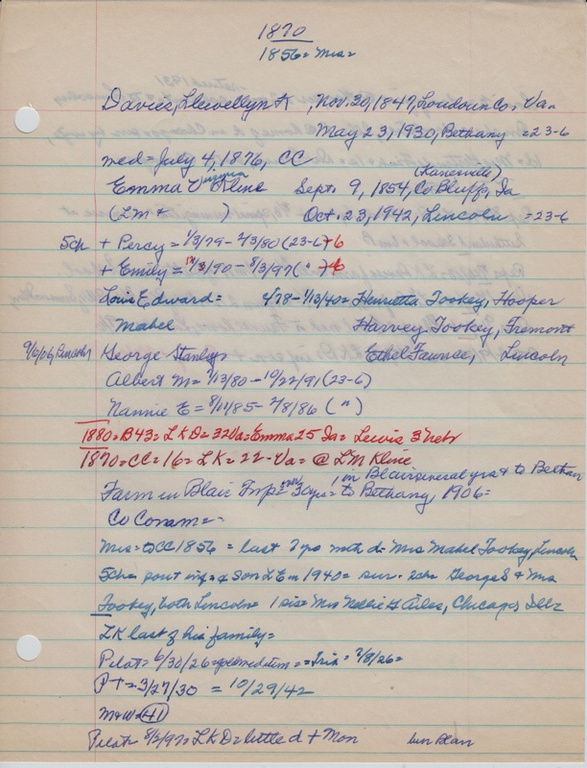 1870
1856 = Mrs =
Davies, Llewellyn K , Nov. 30, 1847, Loudoun Co, Va.
May 23, 1930, Bethany = 23-6
med = July 4, 1876, CC
(Kanesville)
Emma Virginia Kline Sept. 9, 1854, Co Bluffs, Ia
(LM + ) Oct. 23, 1942, Lincoln = 23-6
5ch + Percy = 1/3/79 - 2/3/80 (23-6) +6
+ Emily = /90 - 8/3/97 ( " ) +6
Louis Edward = 4/78 - 1/13/40 = Henrietta Tookey, Hooper
Mabel Harvey Tookey, Fremont
George Stanley Ethel Fawnce, Lincoln
Albert M = 7/13/80 - 10/22/91 (23-6)
Nannie E = 8/11/85 - 2/8/86 ( " )
1880 = B43 = LKD = 32 Va = Emma 25 Ia = Lewis 3 Nebr
1870 = CC = 16 = LK = 22 - Va = @ LM Kline
in Blair several yrs & to Bethany
Farm in Blair Twp = yrs = to Bethany, 1906 =
Co Comm =
Mrs = to CC 1856 = last 2 yrs with d = Mrs Mabel Tookey, Lincoln
5ch = & son LE in 1940 = sur. 2ch George S & Mrs
Tookey, both Lincoln = 1 sis = Mrs Nellie G Ailes, Chicago, Ill
LK last of his family =
Pilot = 6/30/26 = = Trib = 7/8/26 =
PT = 3/27/30 = 10/29/42
M&W = 41
Pilot = 8/3/97 = LKD = little d + Mon